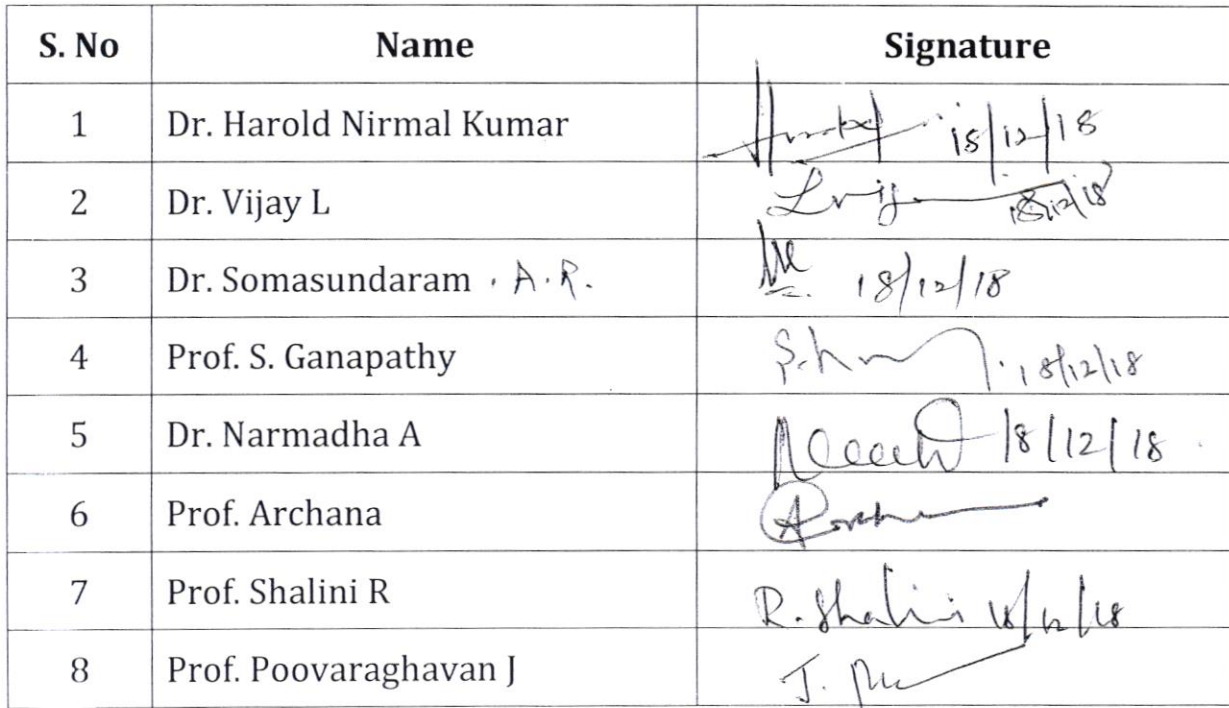 S. No Name Signature
1 Dr. Harold Nirmal Kumar 18/12/18
2 Dr. Vijay L 18/12/18
3 Dr. Somasundaram . A.R. 18/12/18
4 Prof. S. Ganapathy 18/12/18
5 Dr. Narmadha A 18/12/18
6 Prof. Archana
7 Prof. Shalini R R. Shalini 18/12/18
8 Prof. Poovaraghavan J J.